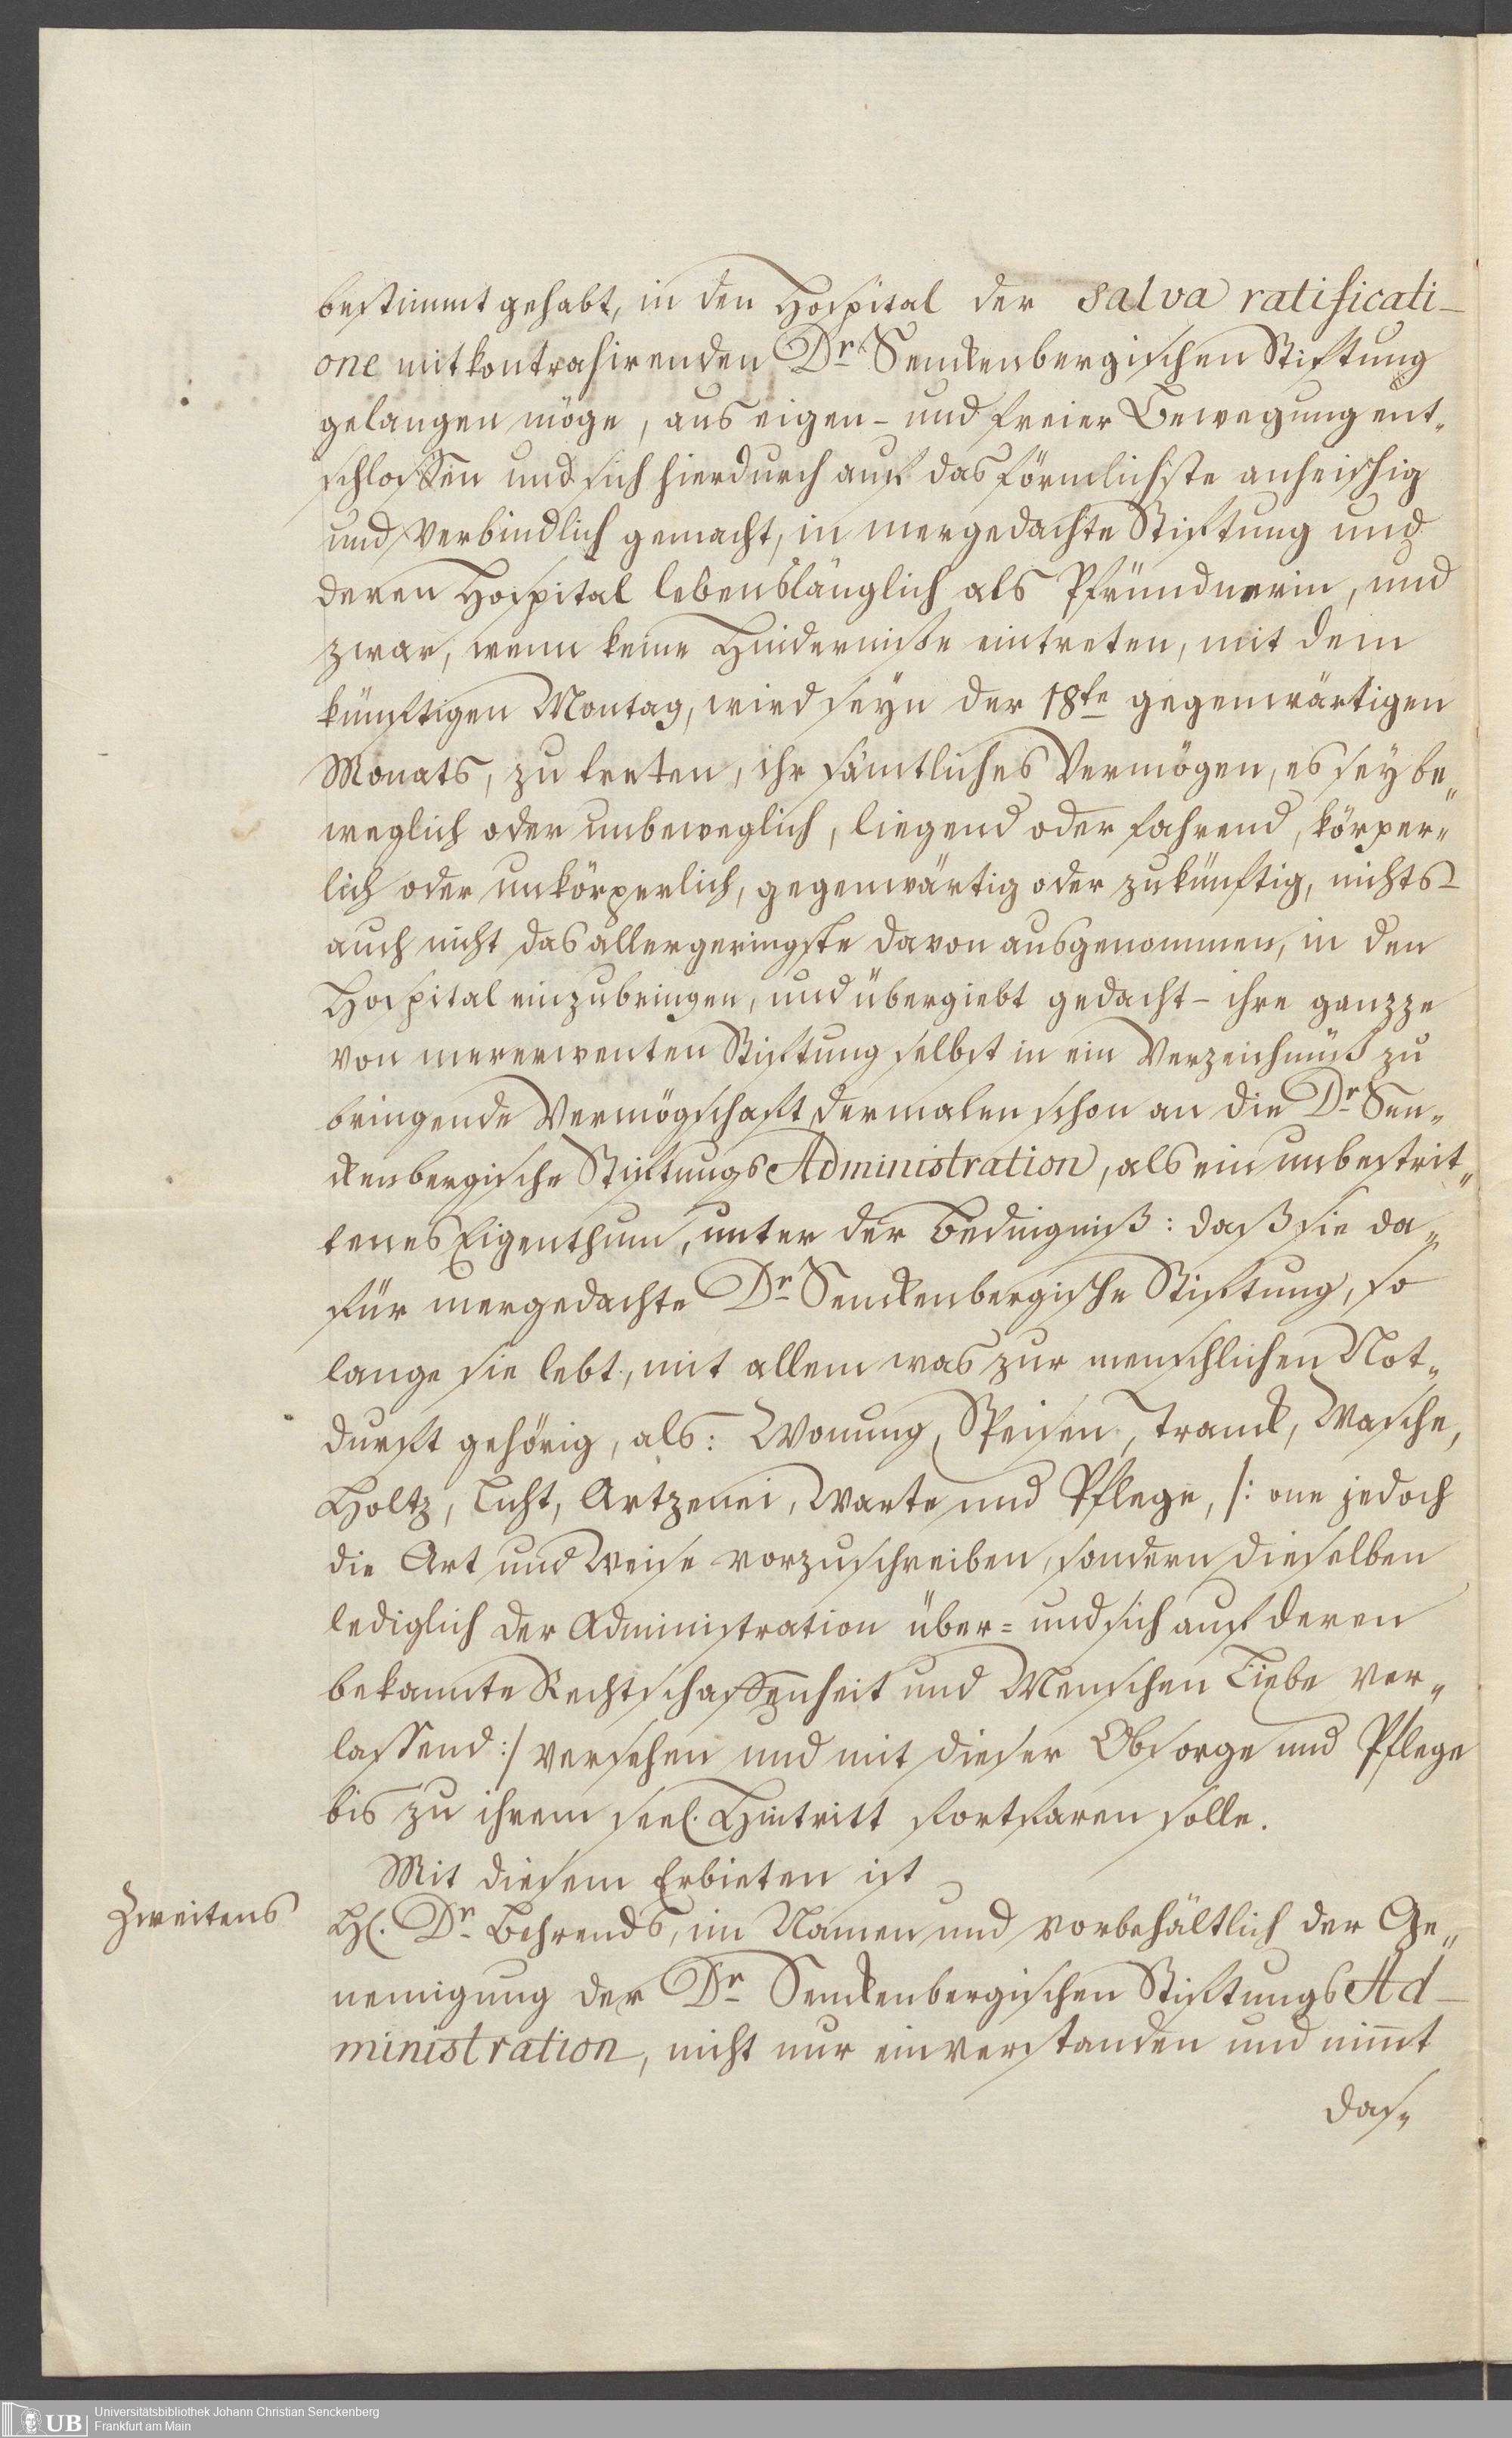 bestimmt gehabt, in den Hospital der salva ratificati-
one mitkontrahirenden Dr. Senckenbergischen Stiftung
gelangen möge, aus eigen- und freier Bewegung ent-
schlossen und sich hierdurch auf das förmlichste anheischig
und verbindlich gemacht, in mergedachte Stiftung und
deren Hospital lebenslänglich als Pfründnerin, und
zwar, wenn keine Hinderniße eintreten, mit dem
künftigen Montag, wird seyn der 18te gegenwärtigen
Monats, zu treten, ihr sämtliches Vermögen, es sey be-
weglich oder unbeweglich, liegend oder fahrend, körper-
lich oder unkörperlich, gegenwärtig oder zukünftig, nichts-
auch nicht das allergeringste davon ausgenommen, in den
Hospital einzubringen, und übergiebt gedacht- ihre ganzze
von mererwenten Stiftung selbst in ein Verzeichnüß zu
bringende Vermögschaft dermalen schon an die Dr. Sen-
ckenbergische Stiftungs Administration, als ein unbestrit-
tenes Eigenthum, unter der Bedingniß: daß sie da-
für mergedachte Dr. Senckenbergische Stiftung, so
lange sie lebt, mit allem was zur menschlichen Not-
durft gehörig, als: Wonung, Speisen, Tranck, Wasche,
Holtz, Licht, Artzenei, Warte und Pflege, /: one jedoch
die Art und Weise vorzuschreiben, sondern dieselben
lediglich der Administration über- und sich auf deren
bekannte Rechtschaffenheit und Menschen Liebe ver-
lassend :/ versehen und mit dieser Obsorge und Pflege
bis zu ihrem seel. Hintritt fortfaren solle.
Mit diesem Erbieten ist
Zweitens
H. Dr. Behrends, im Namen und vorbehältlich der Ge-
nemigung der Dr. Senckenbergischen Stiftungs Ad-
ministration, nicht nur einverstanden und nimt
das-
UB
Universitätsbibliothek Johann Christian Senckenberg
Frankfurt am Main